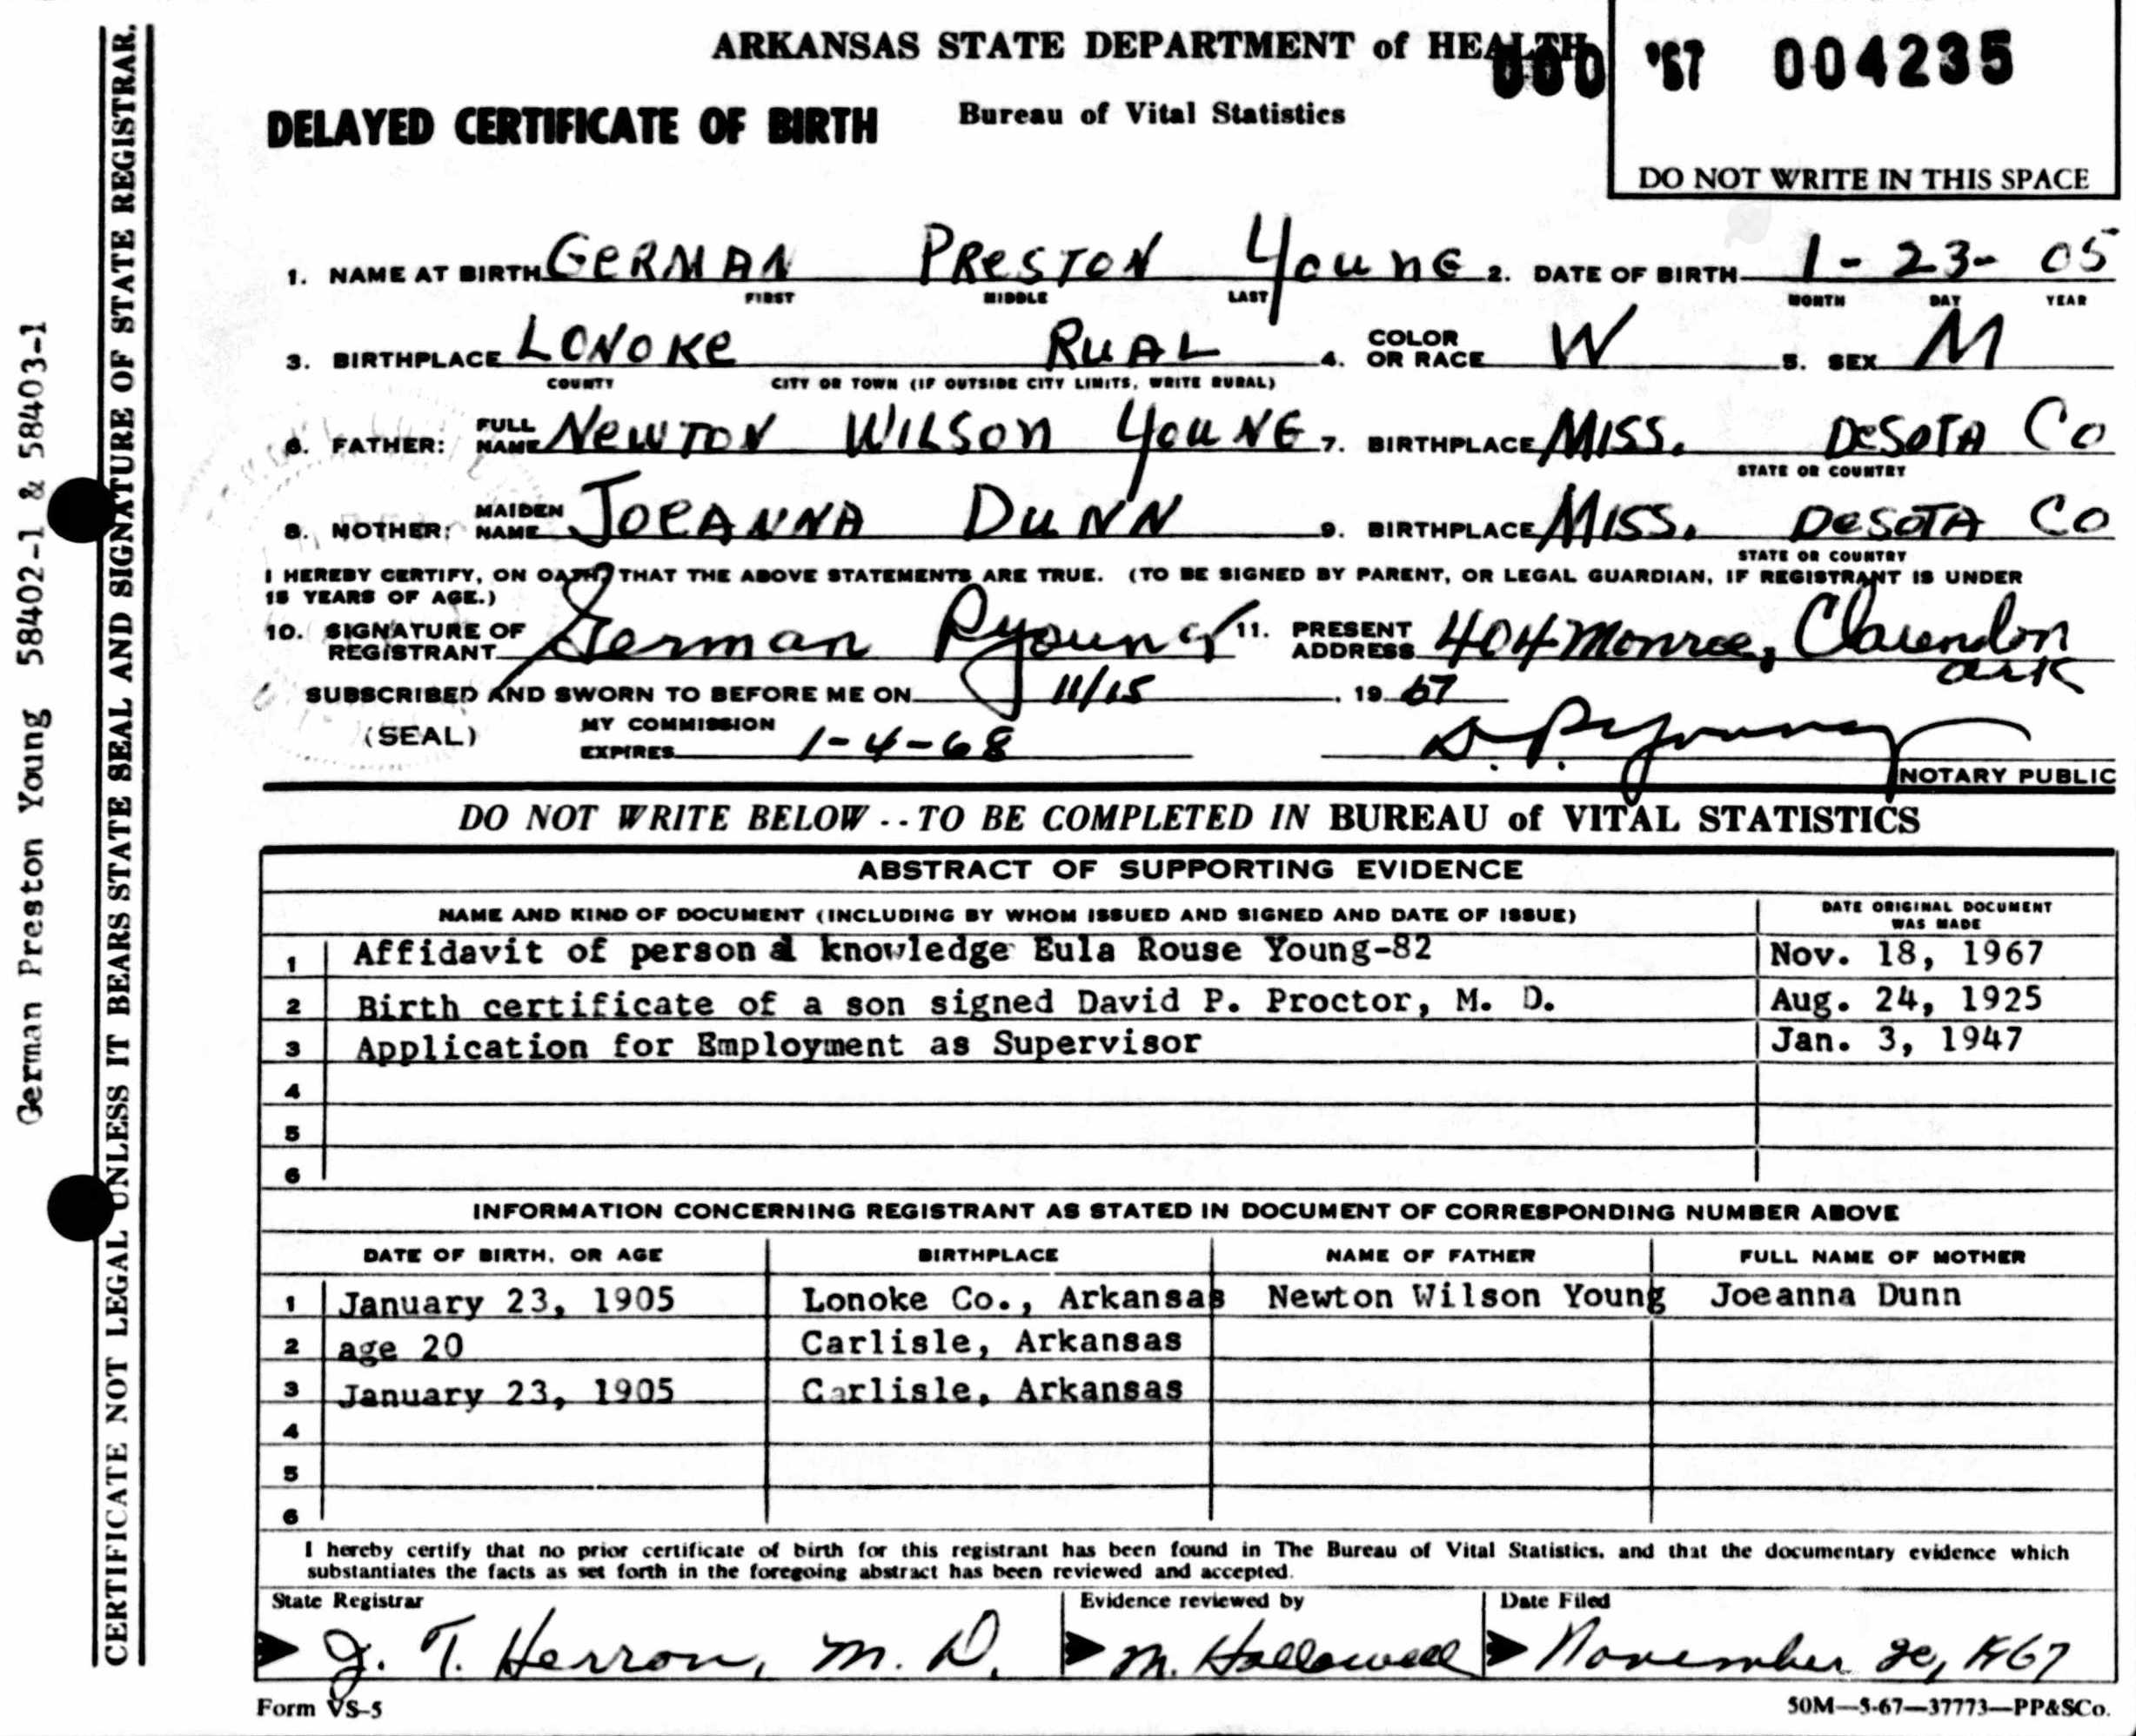 ARKANSAS STATE DEPARTMENT of HEALTH
000 '67 004235
DELAYED CERTIFICATE OF BIRTH Bureau of Vital Statistics
DO NOT WRITE IN THIS SPACE
1. NAME AT BIRTH GERMAN PRESTON YOUNG 2. DATE OF BIRTH 1-23-05
FIRST MIDDLE LAST MONTH DAY YEAR
3. BIRTHPLACE LONOKE RUAL 4. COLOR OR RACE W 5. SEX M
COUNTY CITY OR TOWN (IF OUTSIDE CITY LIMITS, WRITE RURAL)
6. FATHER: FULL NAME NEWTON WILSON YOUNG 7. BIRTHPLACE MISS. DeSOTA CO
STATE OR COUNTRY
8. MOTHER: MAIDEN NAME JOEANNA DUNN 9. BIRTHPLACE MISS. DeSOTA CO
STATE OR COUNTRY
I HEREBY CERTIFY, ON OATH, THAT THE ABOVE STATEMENTS ARE TRUE. (TO BE SIGNED BY PARENT, OR LEGAL GUARDIAN, IF REGISTRANT IS UNDER
18 YEARS OF AGE.)
10. SIGNATURE OF REGISTRANT German P Young 11. PRESENT ADDRESS 404 Monroe, Clarendon
Ark
SUBSCRIBED AND SWORN TO BEFORE ME ON 11/15, 19 67
(SEAL) MY COMMISSION EXPIRES 1-4-68 D. P. Young
NOTARY PUBLIC
DO NOT WRITE BELOW -- TO BE COMPLETED IN BUREAU of VITAL STATISTICS
ABSTRACT OF SUPPORTING EVIDENCE
NAME AND KIND OF DOCUMENT (INCLUDING BY WHOM ISSUED AND SIGNED AND DATE OF ISSUE) DATE ORIGINAL DOCUMENT WAS MADE
1 Affidavit of personal knowledge Eula Rouse Young-82 Nov. 18, 1967
2 Birth certificate of a son signed David P. Proctor, M. D. Aug. 24, 1925
3 Application for Employment as Supervisor Jan. 3, 1947
4
5
6
INFORMATION CONCERNING REGISTRANT AS STATED IN DOCUMENT OF CORRESPONDING NUMBER ABOVE
DATE OF BIRTH, OR AGE BIRTHPLACE NAME OF FATHER FULL NAME OF MOTHER
1 January 23, 1905 Lonoke Co., Arkansas Newton Wilson Young Joeanna Dunn
2 age 20 Carlisle, Arkansas
3 January 23, 1905 Carlisle, Arkansas
4
5
6
I hereby certify that no prior certificate of birth for this registrant has been found in The Bureau of Vital Statistics, and that the documentary evidence which
substantiates the facts as set forth in the foregoing abstract has been reviewed and accepted.
State Registrar Evidence reviewed by Date Filed
J. T. Herron, M. D. M. Hallowell November 20, 1967
Form VS-5 50M—5-67—37773—PP&SCo.
CERTIFICATE NOT LEGAL UNLESS IT BEARS STATE SEAL AND SIGNATURE OF STATE REGISTRAR.
German Preston Young 58402-1 & 58403-1